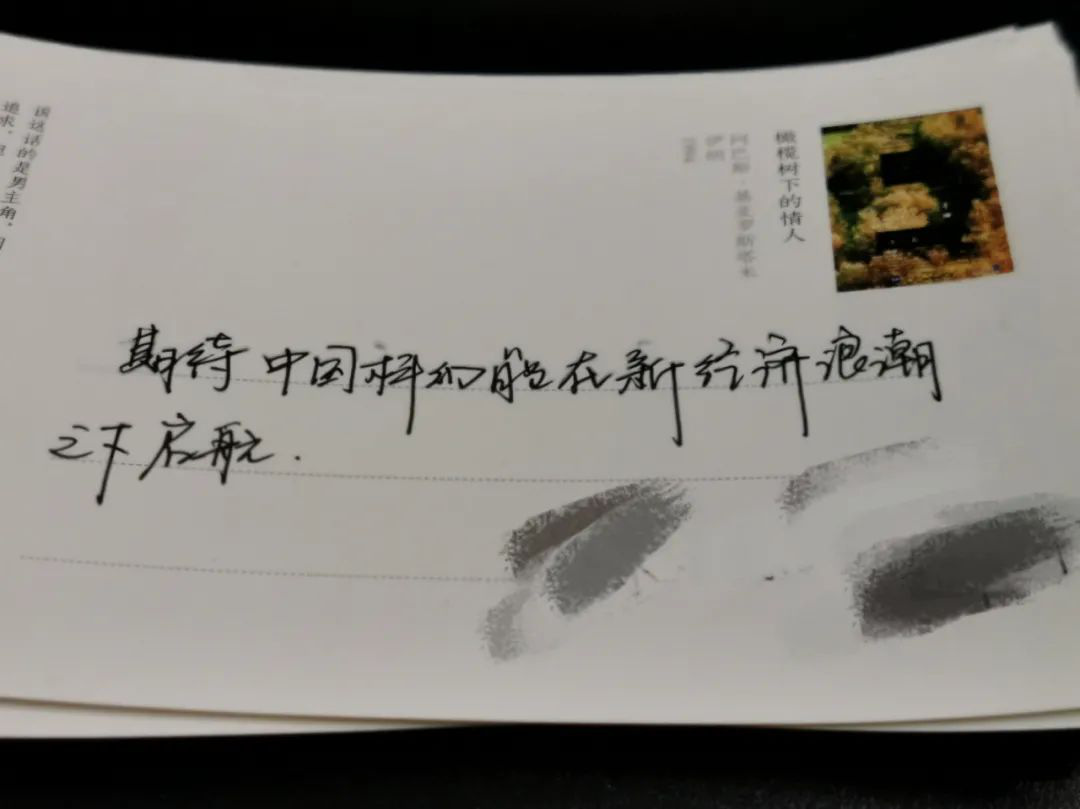 橄榄树下的情人
阿巴斯·基亚罗斯塔米
伊朗
1994
说这话的是男主角，
追求，
期待中国科幻能在新经济浪潮
之下启航.